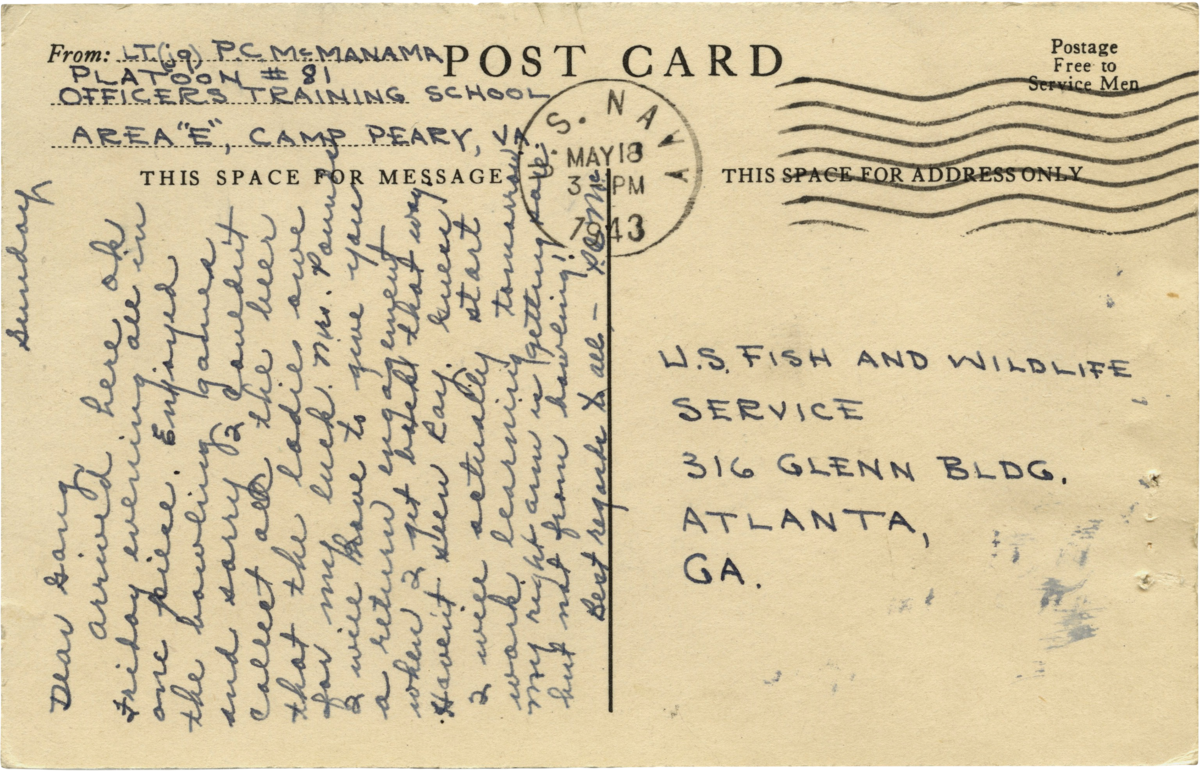 From: LT.(jg) P.C. McMANAMA
PLATOON # 81
OFFICERS TRAINING SCHOOL
AREA "E", CAMP PEARY, VA.
POST CARD
Postage
Free to
Service Men
U.S. NAVY
MAY 18
3 PM
1943
THIS SPACE FOR MESSAGE
THIS SPACE FOR ADDRESS ONLY
Sunday
Dear Gang
arrived here ok
Friday evening all in
one piece. Enjoyed
the bowling games
and sorry I couldn't
collect all the beer
that the ladies owe
for my luck. Mrs.
I will have to give you
a return engagement
when I get back that way.
Haven't seen Ray. Guess
I will actually start
work learning tomorrow
My right arm is getting sore.
but not from bowling!
Best regards to all - P.C. Mc
U.S. FISH AND WILDLIFE
SERVICE
316 GLENN BLDG.
ATLANTA,
GA.